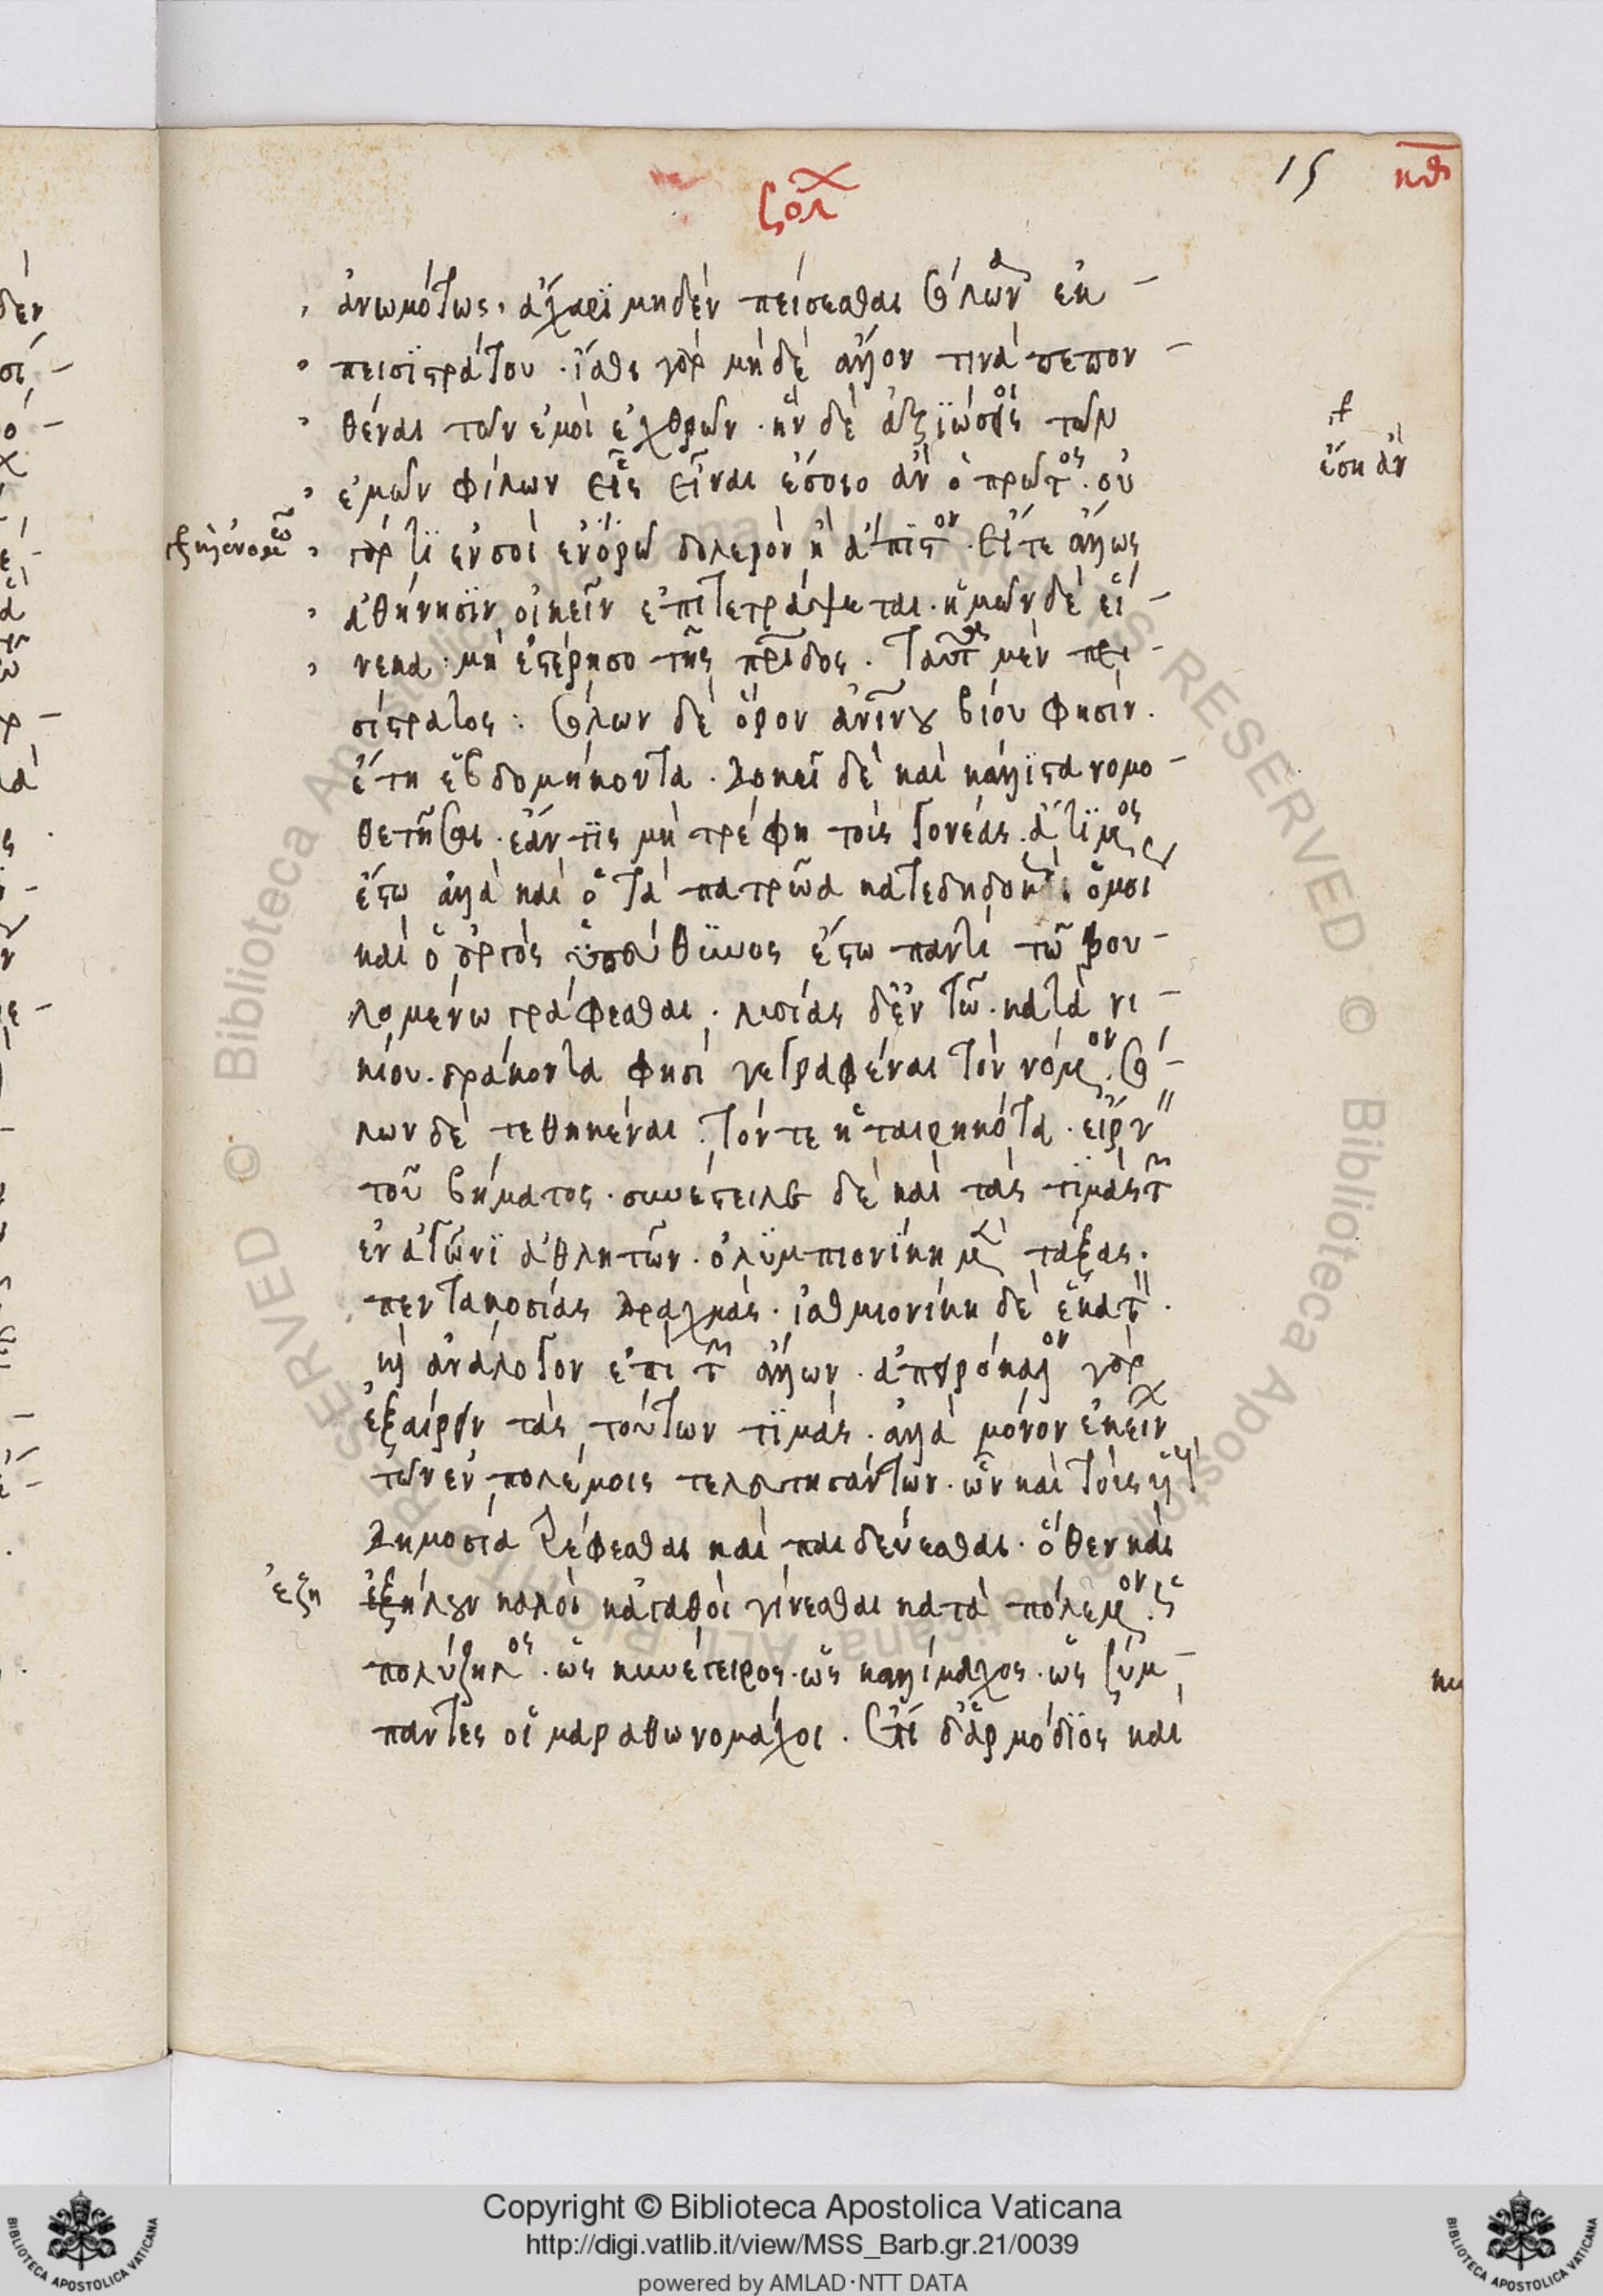 15 κθ
σολ
ἀνωμότως, ἄχαρϊ μηδὲν πείσεσθαι σόλωνα ἐκ
πεισϊστράτου · ἴσθι γὰρ μὴ δὲ ἄλλον τινὰ πεπον
θέναι τῶν ἐμοὶ ἐχθρῶν · ἢν δὲ ἀξϊώσοις τῶν
ἔση ἂν
ἐμῶν φίλων εἷς εἶναι ἔσοιο ἂν ὁ πρῶτος · οὐ
γάρ τϊ ἐν σοὶ ἐνὁρῶ δολερὸν ἢ ἄπϊστον · εἴτε ἄλλως
ἀθήνησϊν οἰκεῖν ἐπιτετράψεται · ἡμῶν δὲ εἵ
νεκα · μὴ ἐστέρησο τῆς πρίδος · ταῦτα μὲν πει
σίστρατος : σόλων δὲ ὅρον ἀνίνου βίου φησὶν ·
ἔτη ἑβδομήκοντα · δοκεῖ δὲ καὶ κάλλϊστα νομο
θετῆσαι · ἐάν τϊς μὴ τρέφη τοὺς γονέας · ἄτϊμος
ἔστω ἀλλὰ καὶ ὁ τὰ πατρῶα κατεδηδοκὼς ὁμοι
καὶ ὁ ἀργὸς ὑπεύθϋνος ἔστω παντὶ τῶ βου
λομένω γράφεσθαι · λυσίας δ' ἐν τῶ · κατὰ νι
κίου · δράκοντα φησὶ γεγραφέναι τὸν νόμον · σό
λων δὲ τεθηκέναι · τόν τε ἡταιρηκότα · εἴργειν
τοῦ βήματος · συνέστειλε δὲ καὶ τὰς τϊμὰς τῶν
ἐν ἀγῶνϊ ἀθλητῶν · ὀλϋμπιονίκη μὲν τάξας ·
πεντακοσίας δραχμάς · ἰσθμιονίκη δὲ ἑκατὸν ·
καὶ ἀνάλογον ἐπὶ τῶν ἄλλων · ἀπειρόκαλον γὰρ
ἐξαίρειν τὰς τούτων τϊμάς · ἀλλὰ μόνον ἐκείνων
τῶν ἐν πολέμοις τελευτησάντων · ὧν καὶ τοὺς υἱοὺς
δημοσία τρέφεσθαι καὶ παιδεύεσθαι · ὅθεν καὶ
ἐζη
ἐξήλουν καλοὶ κἀγαθοὶ γίνεσθαι κατὰ πόλεμον · ὡς
πολύζηλος · ὡς κυνέγειρος · ὡς καλλίμαχος · ὡς σύμ
παντες οἱ μαραθωνομάχοι · ἔτι δ' ἁρμόδϊος καὶ
Copyright © Biblioteca Apostolica Vaticana
http://digi.vatlib.it/view/MSS_Barb.gr.21/0039
powered by AMLAD·NTT DATA